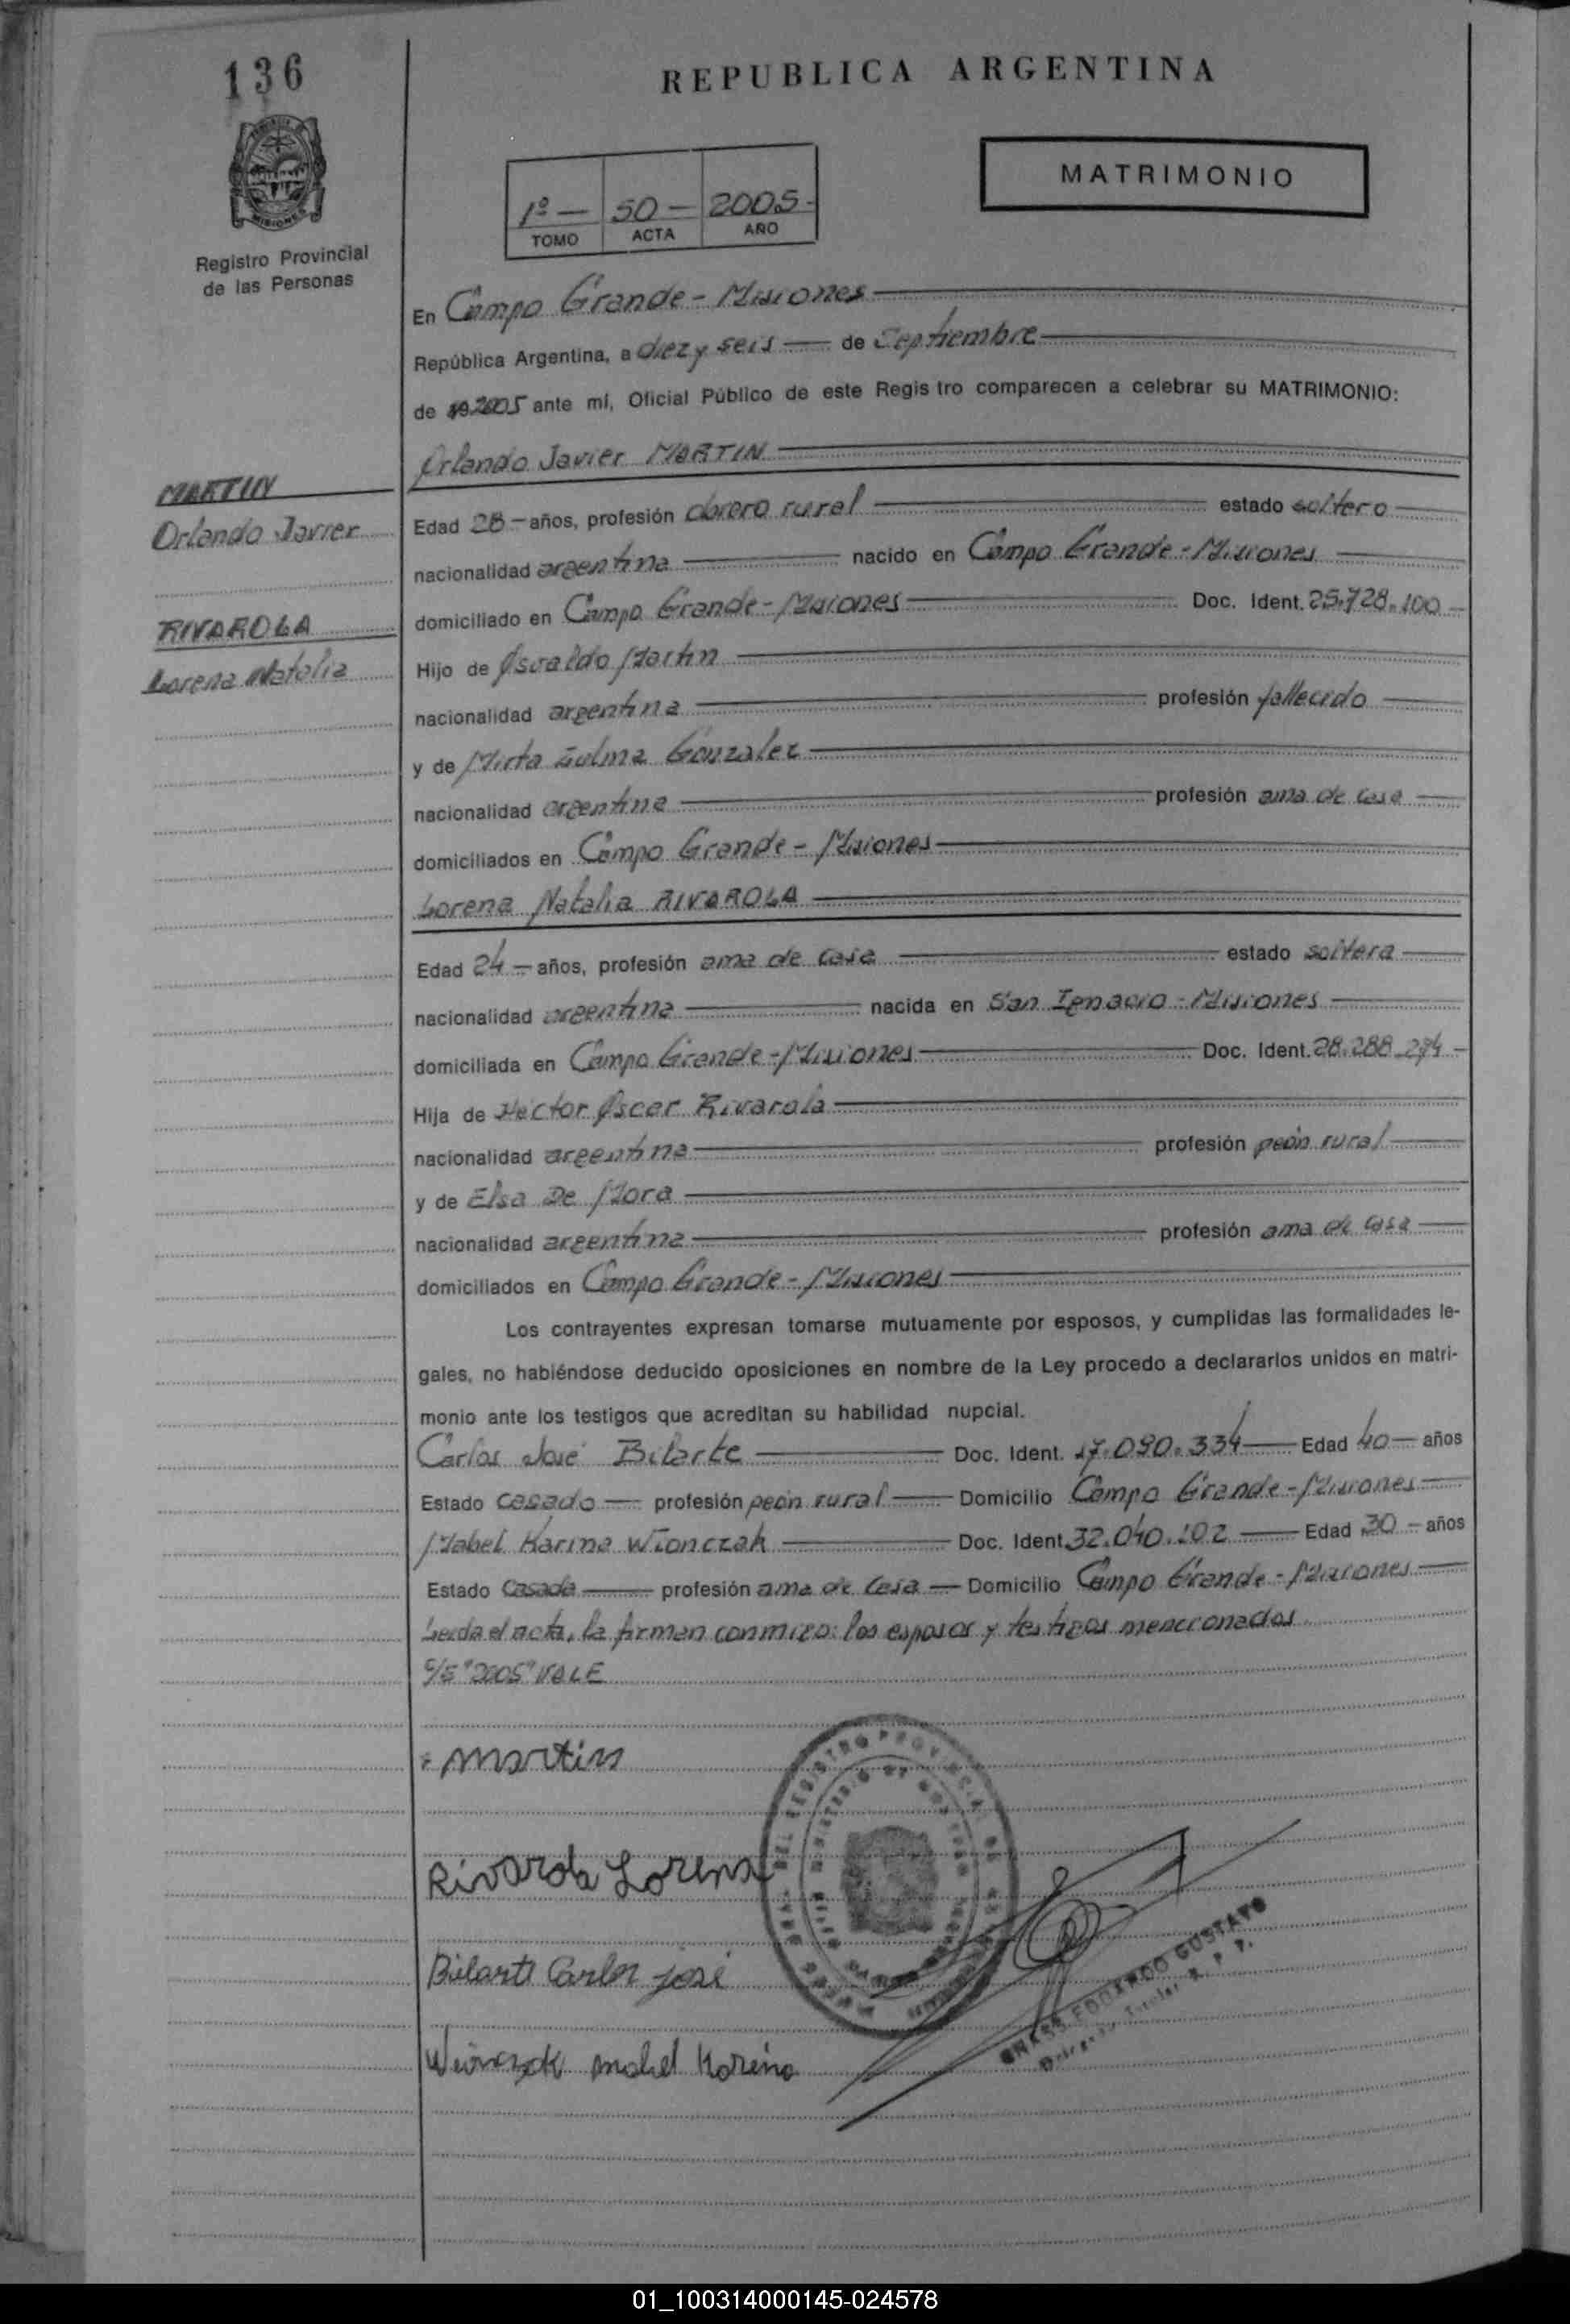 136
REPUBLICA ARGENTINA
MATRIMONIO
1º — 50 — 2005 -
TOMO ACTA AÑO
Registro Provincial
de las Personas
En Campo Grande - Misiones
República Argentina, a diez y seis — de Septiembre
de 2005 ante mí, Oficial Público de este Regis tro comparecen a celebrar su MATRIMONIO:
Orlando Javier MARTIN
MARTIN
Orlando Javier
RIVAROLA
Lorena Natalia
Edad 28 - años, profesión obrero rural estado soltero
nacionalidad argentina nacido en Campo Grande - Misiones
domiciliado en Campo Grande - Misiones Doc. Ident. 25.728.100
Hijo de Osvaldo Martin
nacionalidad argentina profesión fallecido
y de Mirta Zulma Gonzalez
nacionalidad argentina profesión ama de casa
domiciliados en Campo Grande - Misiones
Lorena Natalia RIVAROLA
Edad 24 - años, profesión ama de casa estado soltera
nacionalidad argentina nacida en San Ignacio - Misiones
domiciliada en Campo Grande - Misiones Doc. Ident. 28.288.274 -
Hija de Hector Oscar Rivarola
nacionalidad argentina profesión peón rural
y de Elsa De Mora
nacionalidad argentina profesión ama de casa
domiciliados en Campo Grande - Misiones
Los contrayentes expresan tomarse mutuamente por esposos, y cumplidas las formalidades le-
gales, no habiéndose deducido oposiciones en nombre de la Ley procedo a declararlos unidos en matri-
monio ante los testigos que acreditan su habilidad nupcial.
Carlos José Bilarte Doc. Ident. 17.090.334 Edad 40 — años
Estado casado — profesión peón rural — Domicilio Campo Grande - Misiones
Mabel Karina Wionczak Doc. Ident. 32.040.102 Edad 30 - años
Estado casada profesión ama de casa — Domicilio Campo Grande - Misiones
Leida el acta, la firman conmigo: los esposos y testigos mencionados
c/s "2005" VALE
Martin
Rivarola Lorena
Bilarte Carlos José
Wionczak Mabel Karina
EDUARDO GUSTAVO
01_100314000145-024578